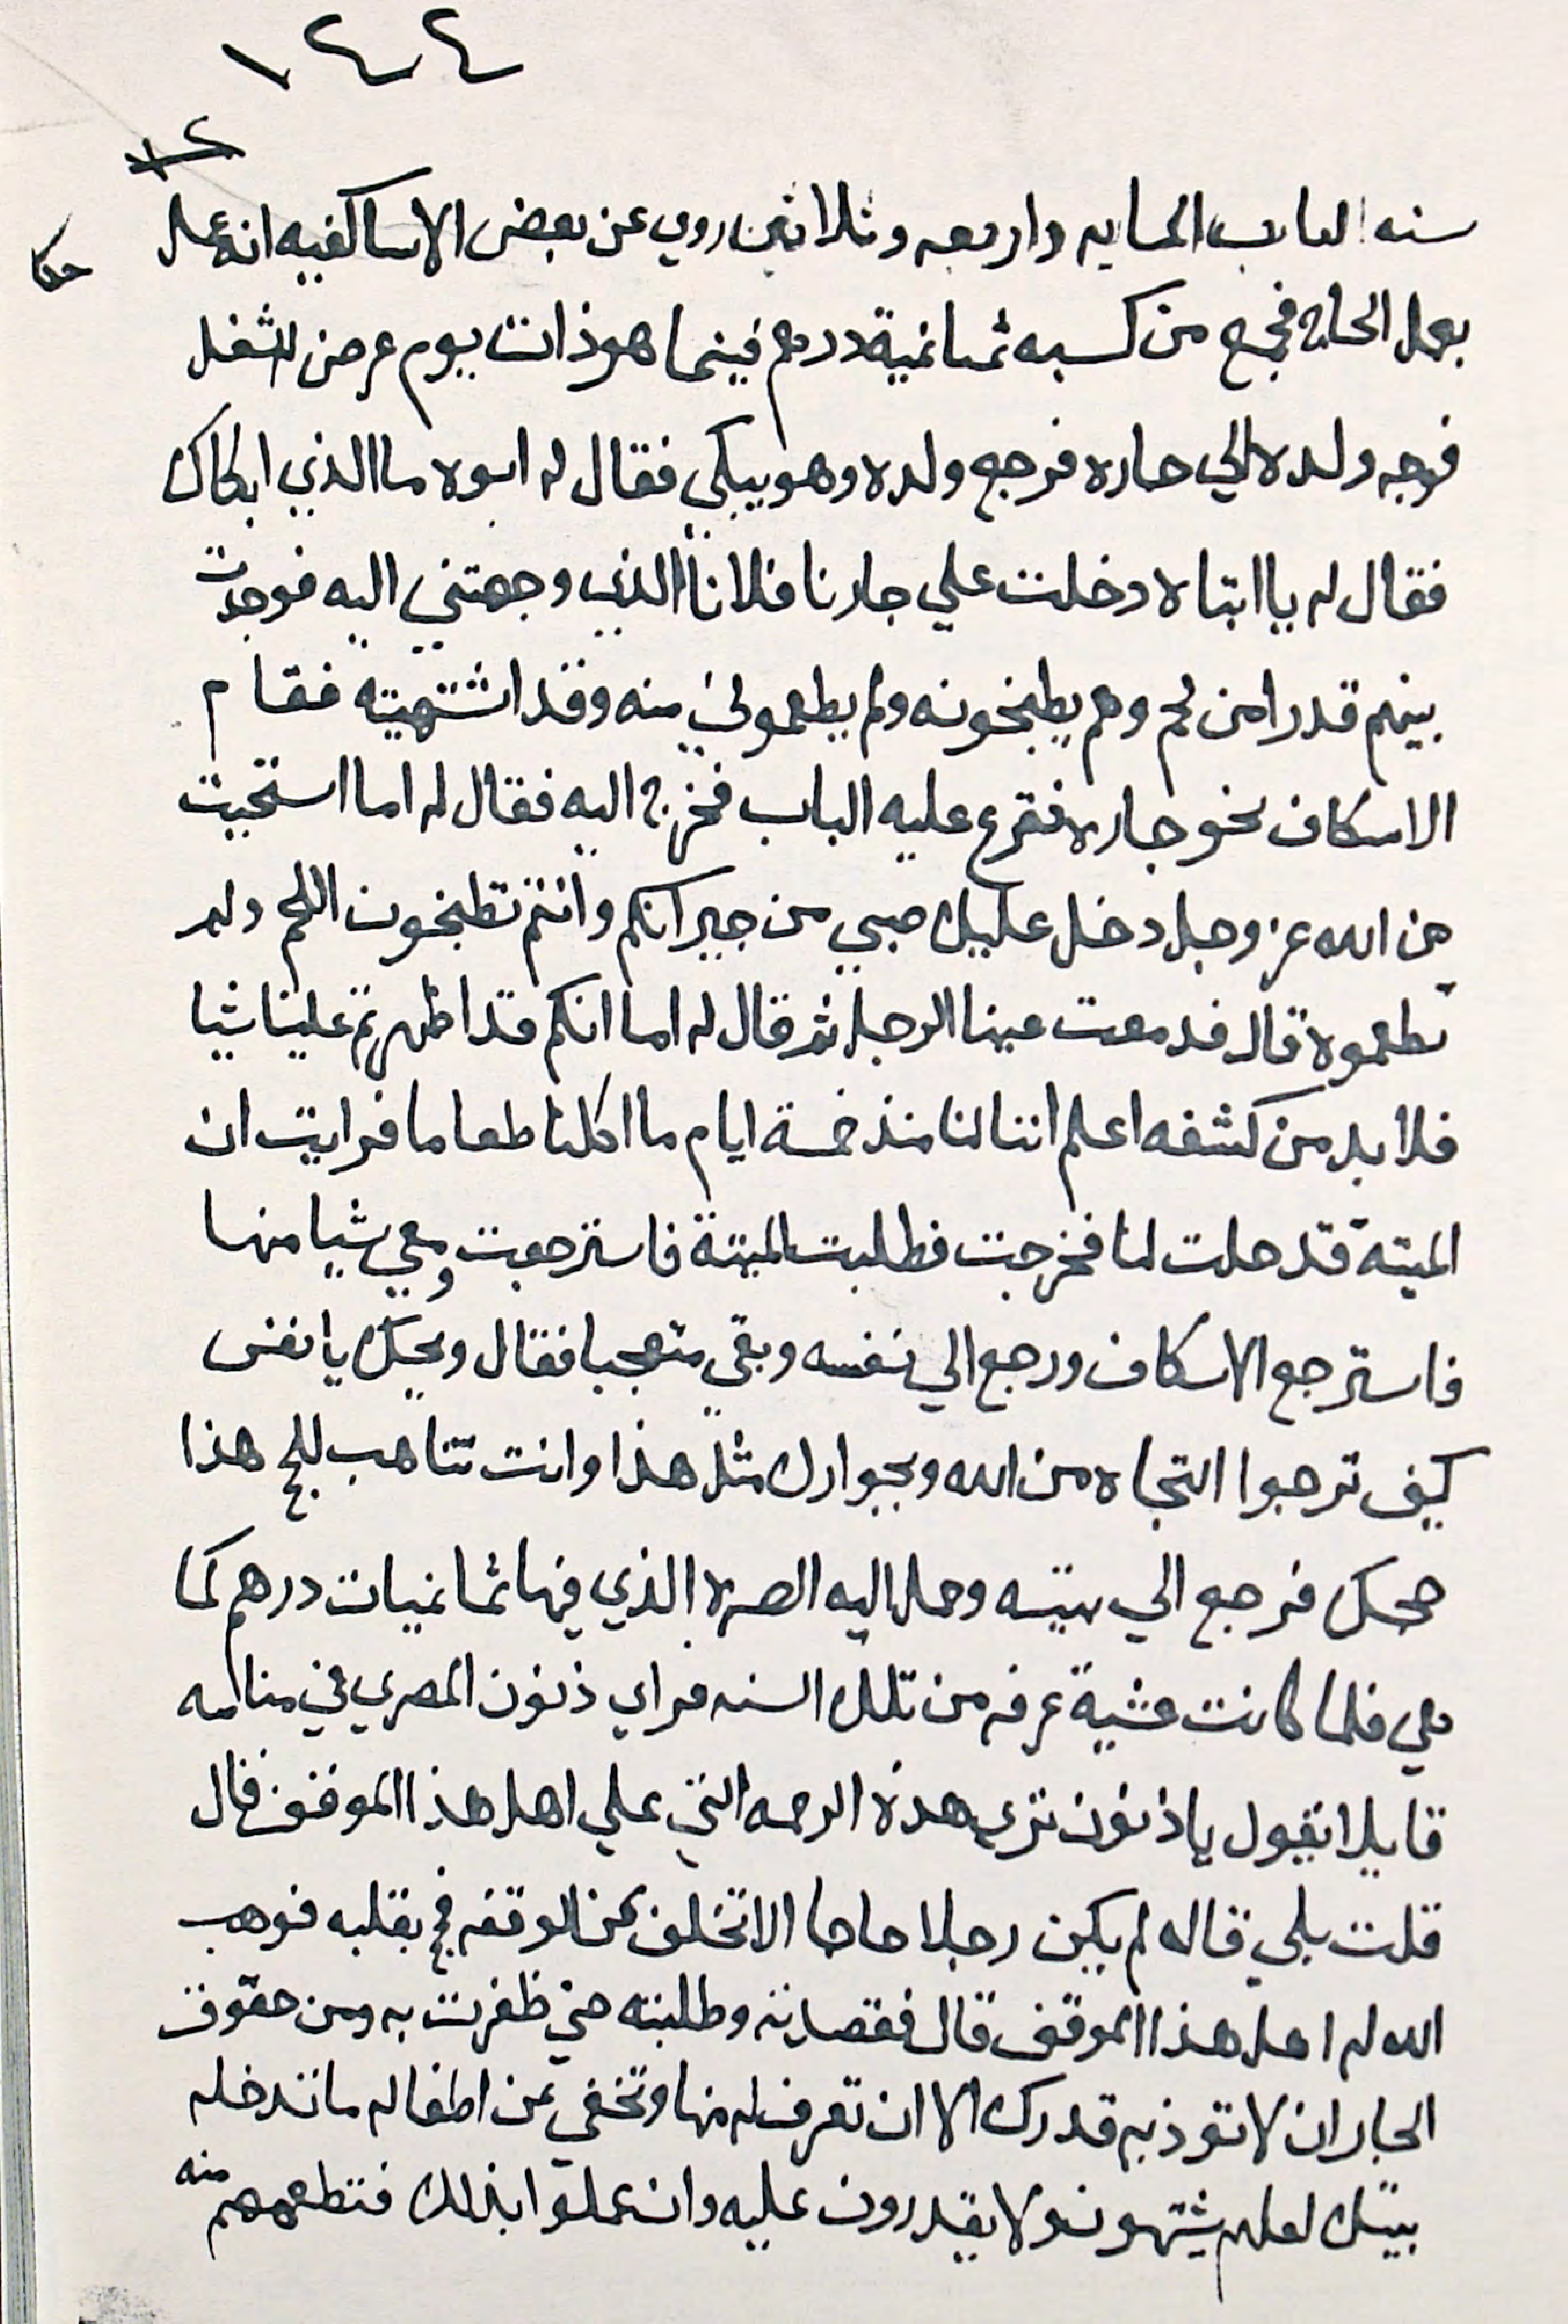 ١٤٤
١٢
سنه الباب الحادي واربعه وثلاثين روي عن بعض الاساكفيه انه عمل
حكا
بعمل الحاج فجمع من كسبه ثمانمية درهم فبينما هو ذات يوم عرض له شغل
فوجه ولده الي جاره فرجع ولده وهو يبكي فقال له ابوه ما الذي ابكاك
فقال له يا ابتاه دخلت علي جارنا فلانا الذي وجهتني اليه فوجدت
بينهم قدرا من لحم وهم يطبخونه ولم يطعموني منه وقد اشتهيته فقام
الاسكاف نحو جاره فقرع عليه الباب فخرج اليه فقال له اما استحيت
من الله عز وجل دخل عليك صبي من جيرانكم وانتم تطبخون اللحم ولم
تطعموه قال فدمعت عينا الرجل ثم قال له اما انكم قد اظهرتم علينا شيا
فلا بد من كشفه اعلم اننا لنا منذ خمسة ايام ما اكلنا طعاما فرايت ان
الميتة قد حلت لنا فخرجت فطلبت الميتة فاسترجعت ومعي شيا منها
فاسترجع الاسكاف ورجع الي نفسه وبقي متعجبا فقال ويحك يا نفس
كيف ترجوا النجاه من الله وبجوارك مثل هذا وانت تتاهب للحج هذا
حجك فرجع الي بيته وحمل اليه الصره الذي فيها ثمانميات درهم كما
هي فلما كانت عشية عرفه من تلك السنه فراي ذنون المصري في منامه
قايلا يقول يا ذنون تري هذه الرحمه التي علي اهل هذا الموقف قال
قلت بلي قال لم يكن رجلا حاجا الا تخلف عن الوقفه فحج بقلبه فوهب
الله له اهل هذا الموقف قال فقصدته وطلبته حتي ظفرت به ومن حقوق
الجار ان لا توذيه قدرك الا ان تعرف له منها وتخفي عن اطفاله ما تدخله
بيتك لعلهم يشتهونه ولا يقدرون عليه وان عملوا بذلك فتطعمهم منه